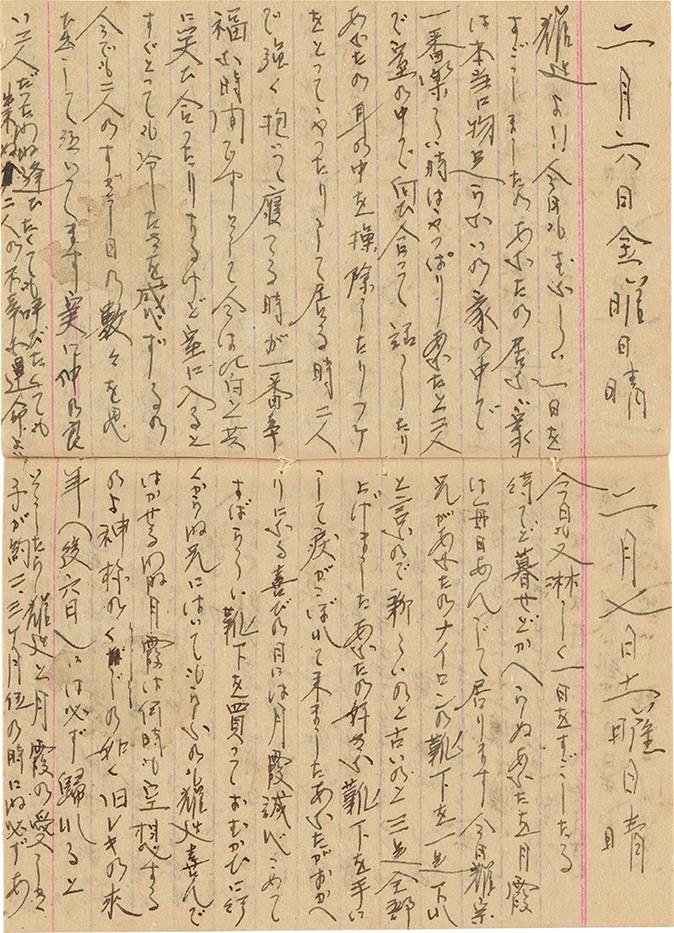 二月六日金曜日晴
耀世よ!!今日もむなしい一日を
すごしましたのあなたの居ない家
は本当に物足らないの家の中で
一番楽しい時はやっぱりあなたと二人
で室の中で向ひ合って話したり
あなたの耳の中を掃除したりフケ
をとってやったりして居る時二人
で強く抱いて寝てる時が一番幸
福な時間ですそして今は
に笑ひ合ったりするけど室に入ると
すぐとっても冷したさを感ずるの
今でも二人のすごす日の数々を思
だして泣いてます実に仲の良
い二人だったのね逢ひたくても呼びたくても
二人の不幸な運命よ
二月七日土曜日晴
今日も又淋しく一日をすごしたる
待てど暮せどかへらぬあなたを月霞
は毎日あんじて居ります今日耀宗
兄があなたのナイロンの靴下を一足下れ
と言ふので新らしいのと古いのと三足全部
上げましたあなたの好きな靴下を手に
して涙がこぼれて来ましたあなたがおかへ
りになる喜びの日には月霞誠心こめて
すばらしい靴下を買っておむかひに行
くからね先にはいてもらふのも耀世喜んで
はかせるわね月霞は何時も空想する
のよ神様のくじの如く旧レキの来
年(後六日)には必ず歸れると
そうしたら耀世と月霞の愛しき
子が約二、三ヶ月位の時にね必ずあ